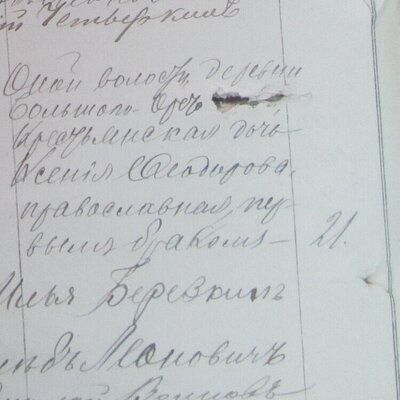 Четверкинъ
Оной волости деревни
большого
крестьянская дочь
Ксенія Ѳеодорова,
православная, пер-
вымъ бракомъ – 21.
Илья Березкинъ
Леоновичъ